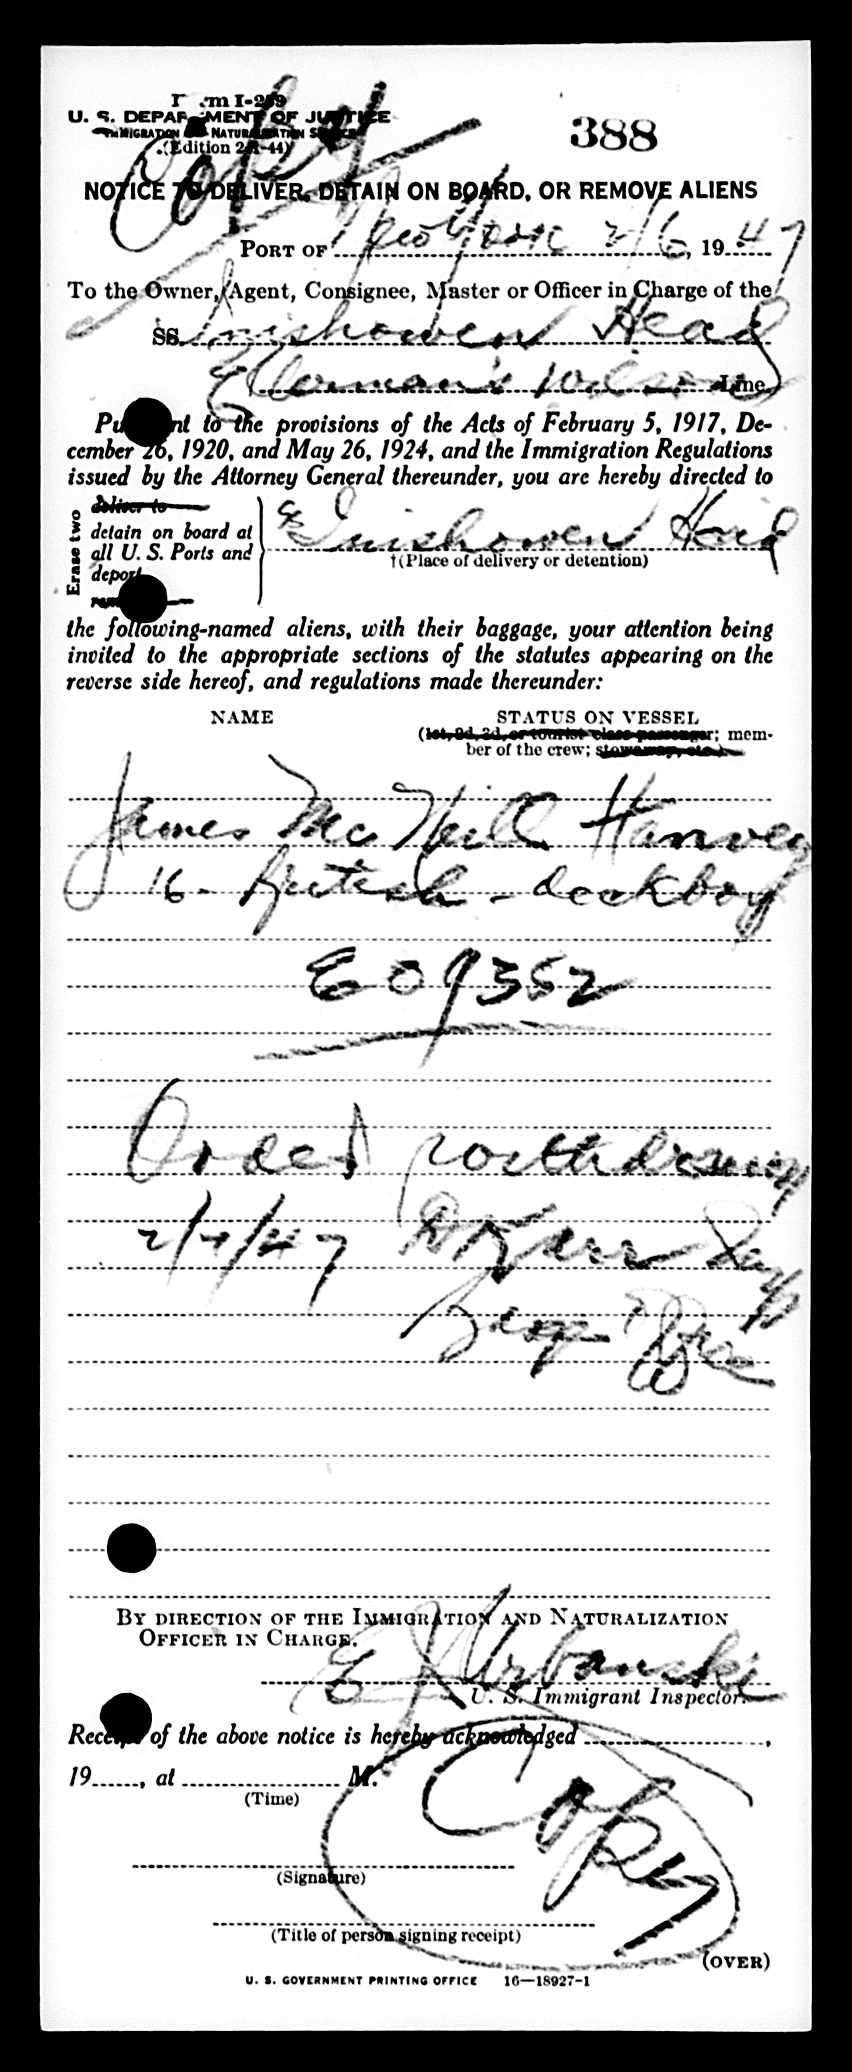 Form I-259
U. S. DEPARTMENT OF JUSTICE
IMMIGRATION AND NATURALIZATION SERVICE
(Edition 2-1-44)
Copy
388
NOTICE TO DELIVER, DETAIN ON BOARD, OR REMOVE ALIENS
PORT OF New York 2/6, 1947
To the Owner, Agent, Consignee, Master or Officer in Charge of the
SS. Inishowen Head
Ellerman's Wilson Line.
Pursuant to the provisions of the Acts of February 5, 1917, De-
cember 26, 1920, and May 26, 1924, and the Immigration Regulations
issued by the Attorney General thereunder, you are hereby directed to
Erase two
deliver to
detain on board at
all U. S. Ports and
deport
SS Inishowen Head
†(Place of delivery or detention)
the following-named aliens, with their baggage, your attention being
invited to the appropriate sections of the statutes appearing on the
reverse side hereof, and regulations made thereunder:
NAME STATUS ON VESSEL
(1st, 2d, 3d, or tourist class passenger; mem-
ber of the crew; stowaway, etc.)
James McNeill Hanvey
16 - British - deckboy
E09352
Order withdrawn
2/7/47 D Karr Insp
Barge Office
BY DIRECTION OF THE IMMIGRATION AND NATURALIZATION
OFFICER IN CHARGE.
E J Urbanski
U. S. Immigrant Inspector.
Receipt of the above notice is hereby acknowledged ,
19 , at M.
(Time)
Copy
(Signature)
(Title of person signing receipt)
(OVER)
U. S. GOVERNMENT PRINTING OFFICE 16—18927-1